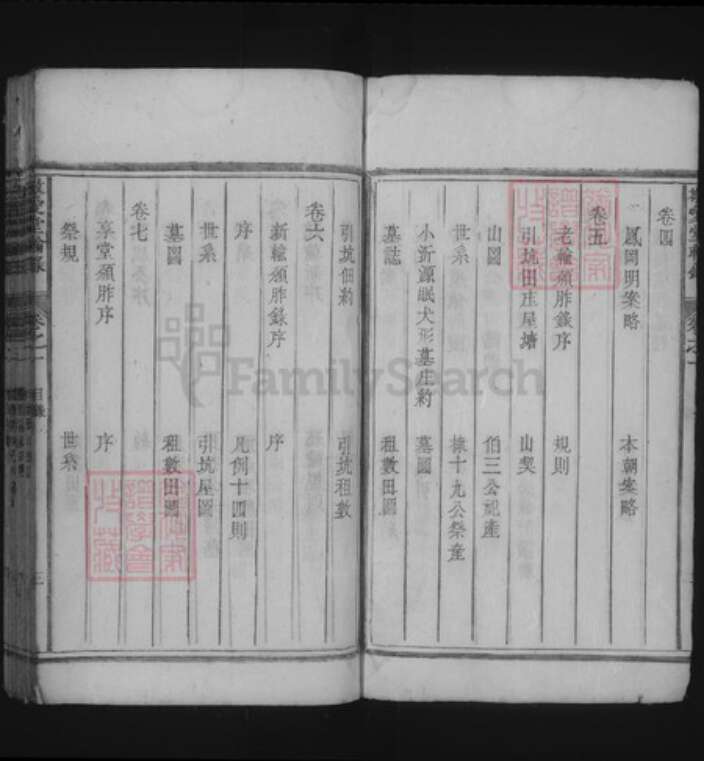 卷四
鳳岡明案略 本朝案略
卷五
老輪頒胙錄序 規則
引坑田庄屋塘 山契
山圖 伯三公祀產
世系 梂十九公祭產
小沂源眠犬形墓庄約 墓圖
墓誌 租數田圖
引坑佃約 引坑租數
卷六
新輪頒胙錄序 序
序 凡例十四則
世系 引坑屋圖
墓圖 租數田圖
卷七
享堂頒胙序 序
祭規 世系
目錄
三
FamilySearch